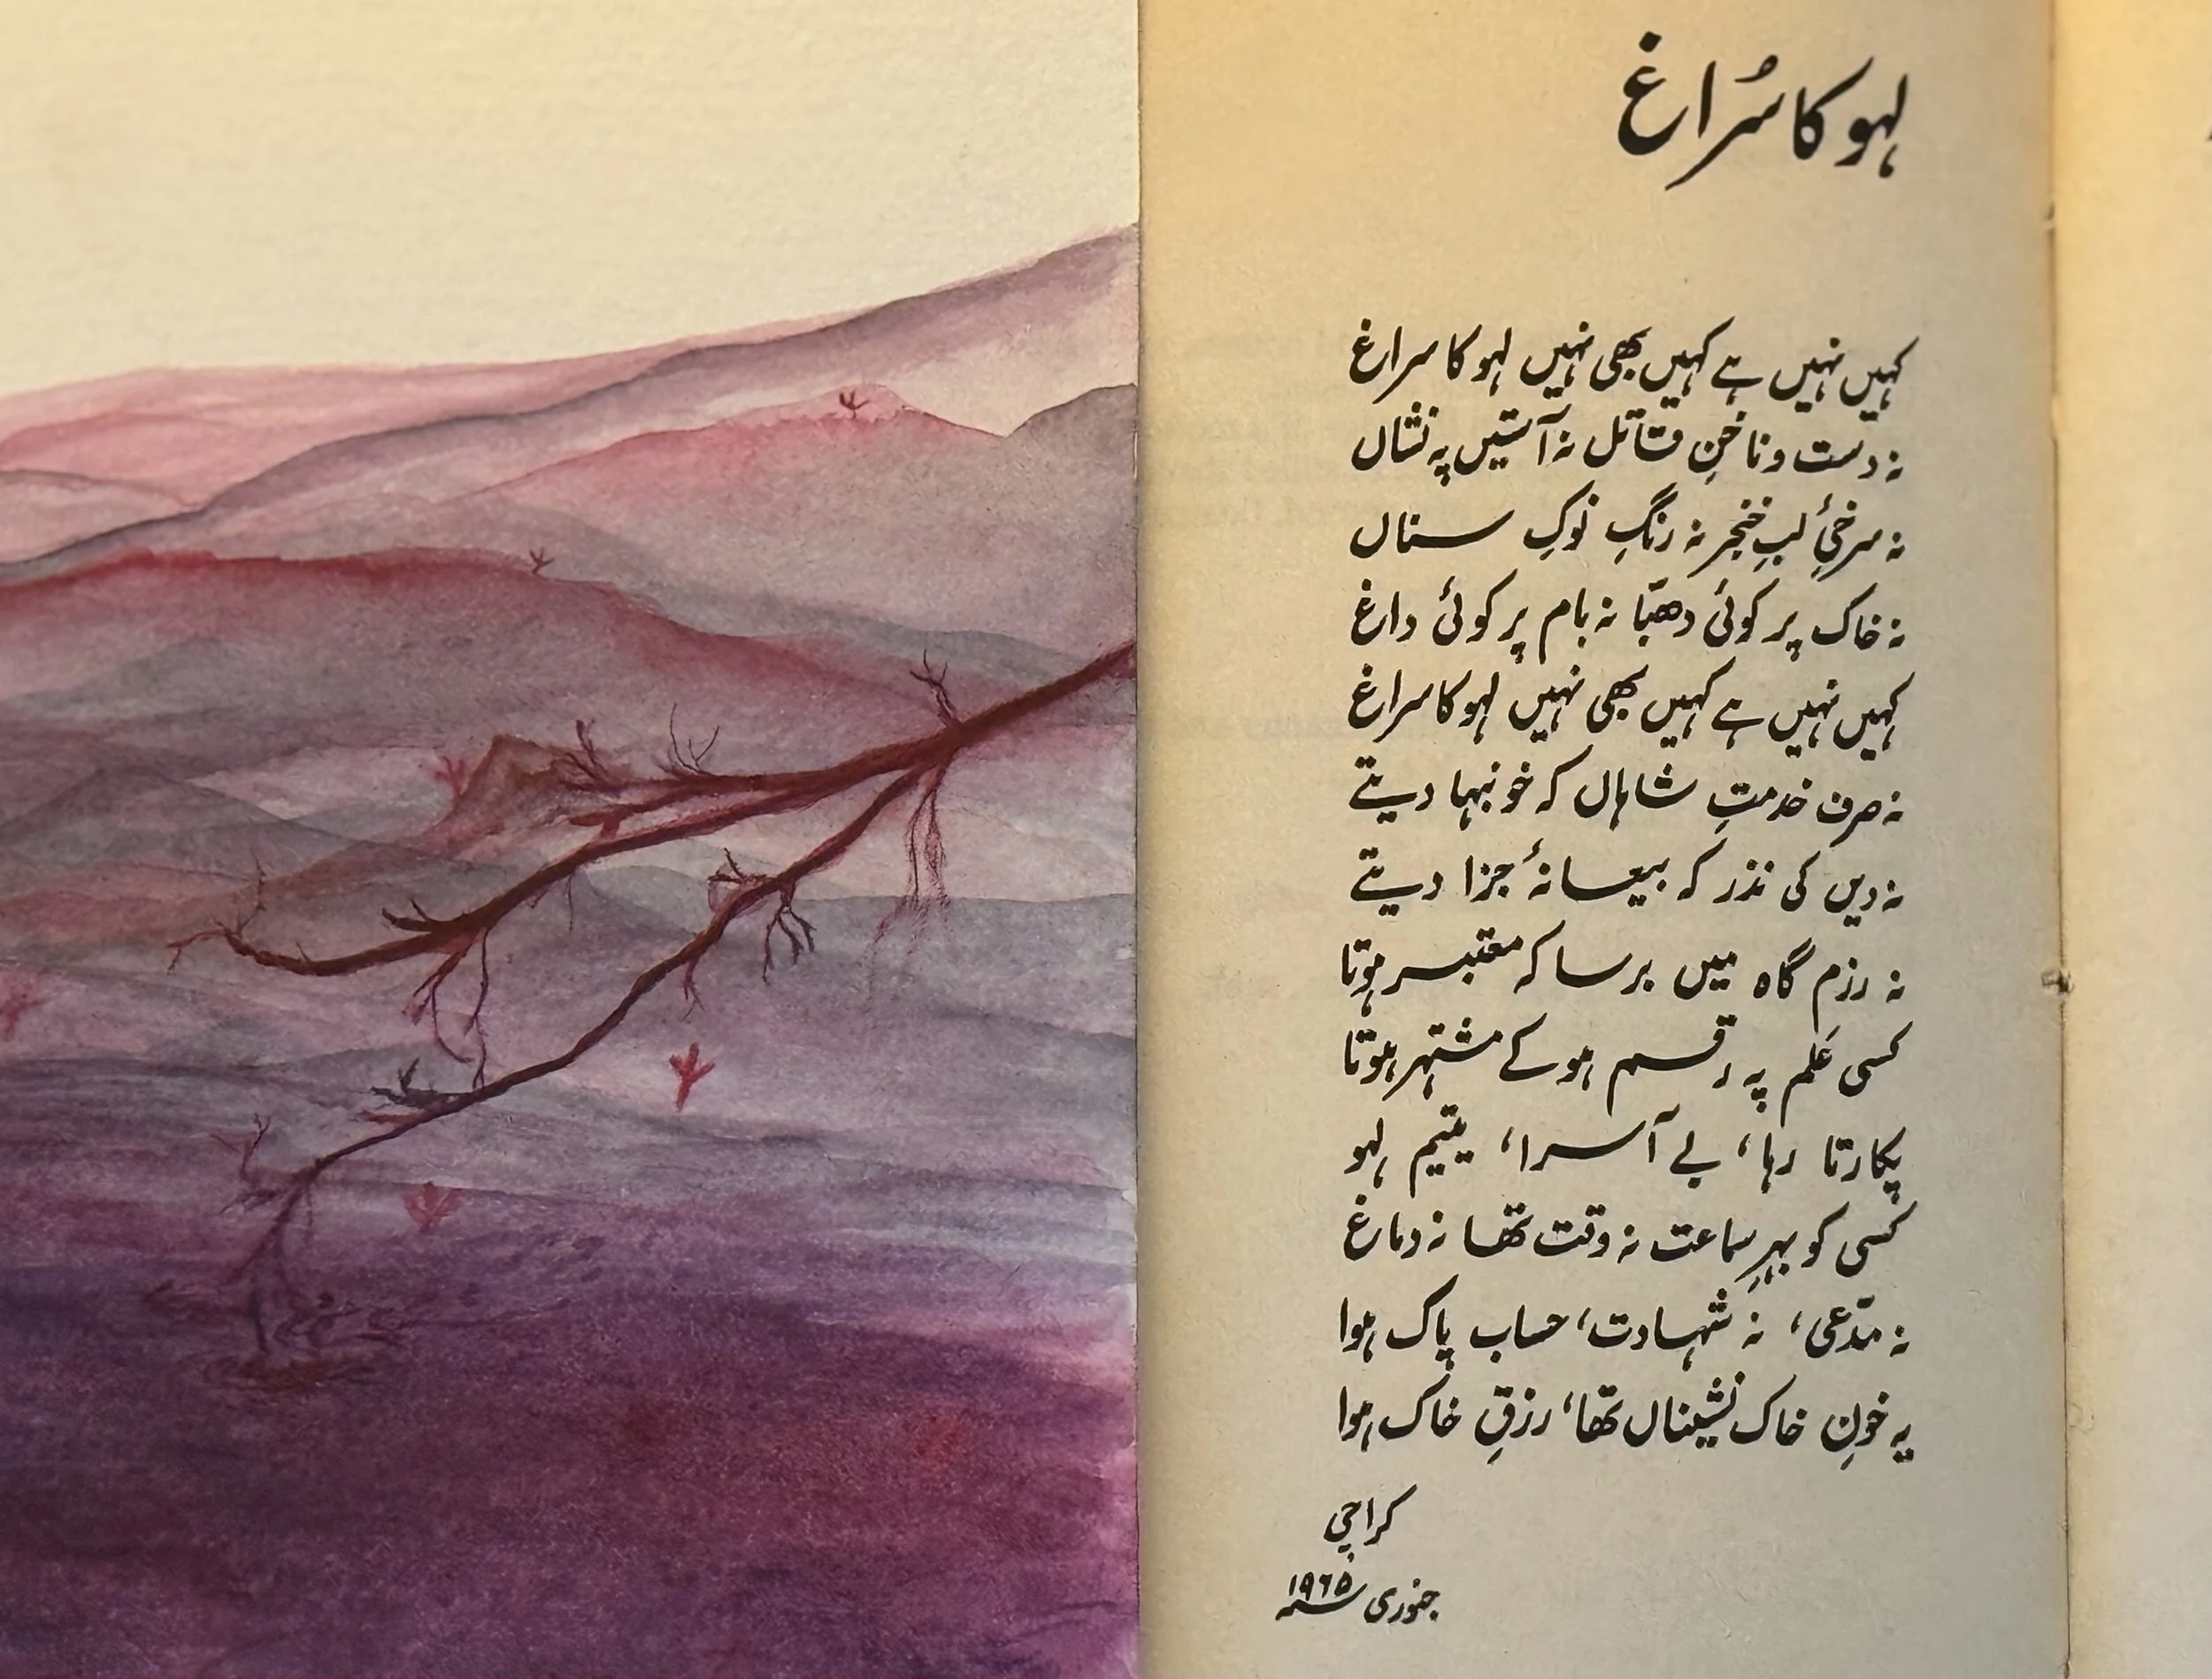 لہو کا سُراغ
کہیں نہیں ہے کہیں بھی نہیں لہو کا سراغ
نہ دست و ناخنِ قاتل نہ آستیں پہ نشاں
نہ سرخیِٔ لبِ خنجر نہ رنگِ نوکِ سناں
نہ خاک پر کوئی دھبّا نہ بام پر کوئی داغ
کہیں نہیں ہے کہیں بھی نہیں لہو کا سراغ
نہ صرف خدمتِ شاہاں کہ خونبہا دیتے
نہ دیں کی نذر کہ بیعانۂ جزا دیتے
نہ رزم گاہ میں برسا کہ معتبر ہوتا
کسی عَلم پہ رقم ہو کے مشتہر ہوتا
پکارتا رہا، بے آسرا، یتیم لہو
کسی کو بہرِ سماعت نہ وقت تھا نہ دماغ
نہ مدّعی، نہ شہادت، حساب پاک ہوا
یہ خونِ خاک نشیناں تھا، رزقِ خاک ہوا
کراچی
جنوری ۱۹۶۵ء